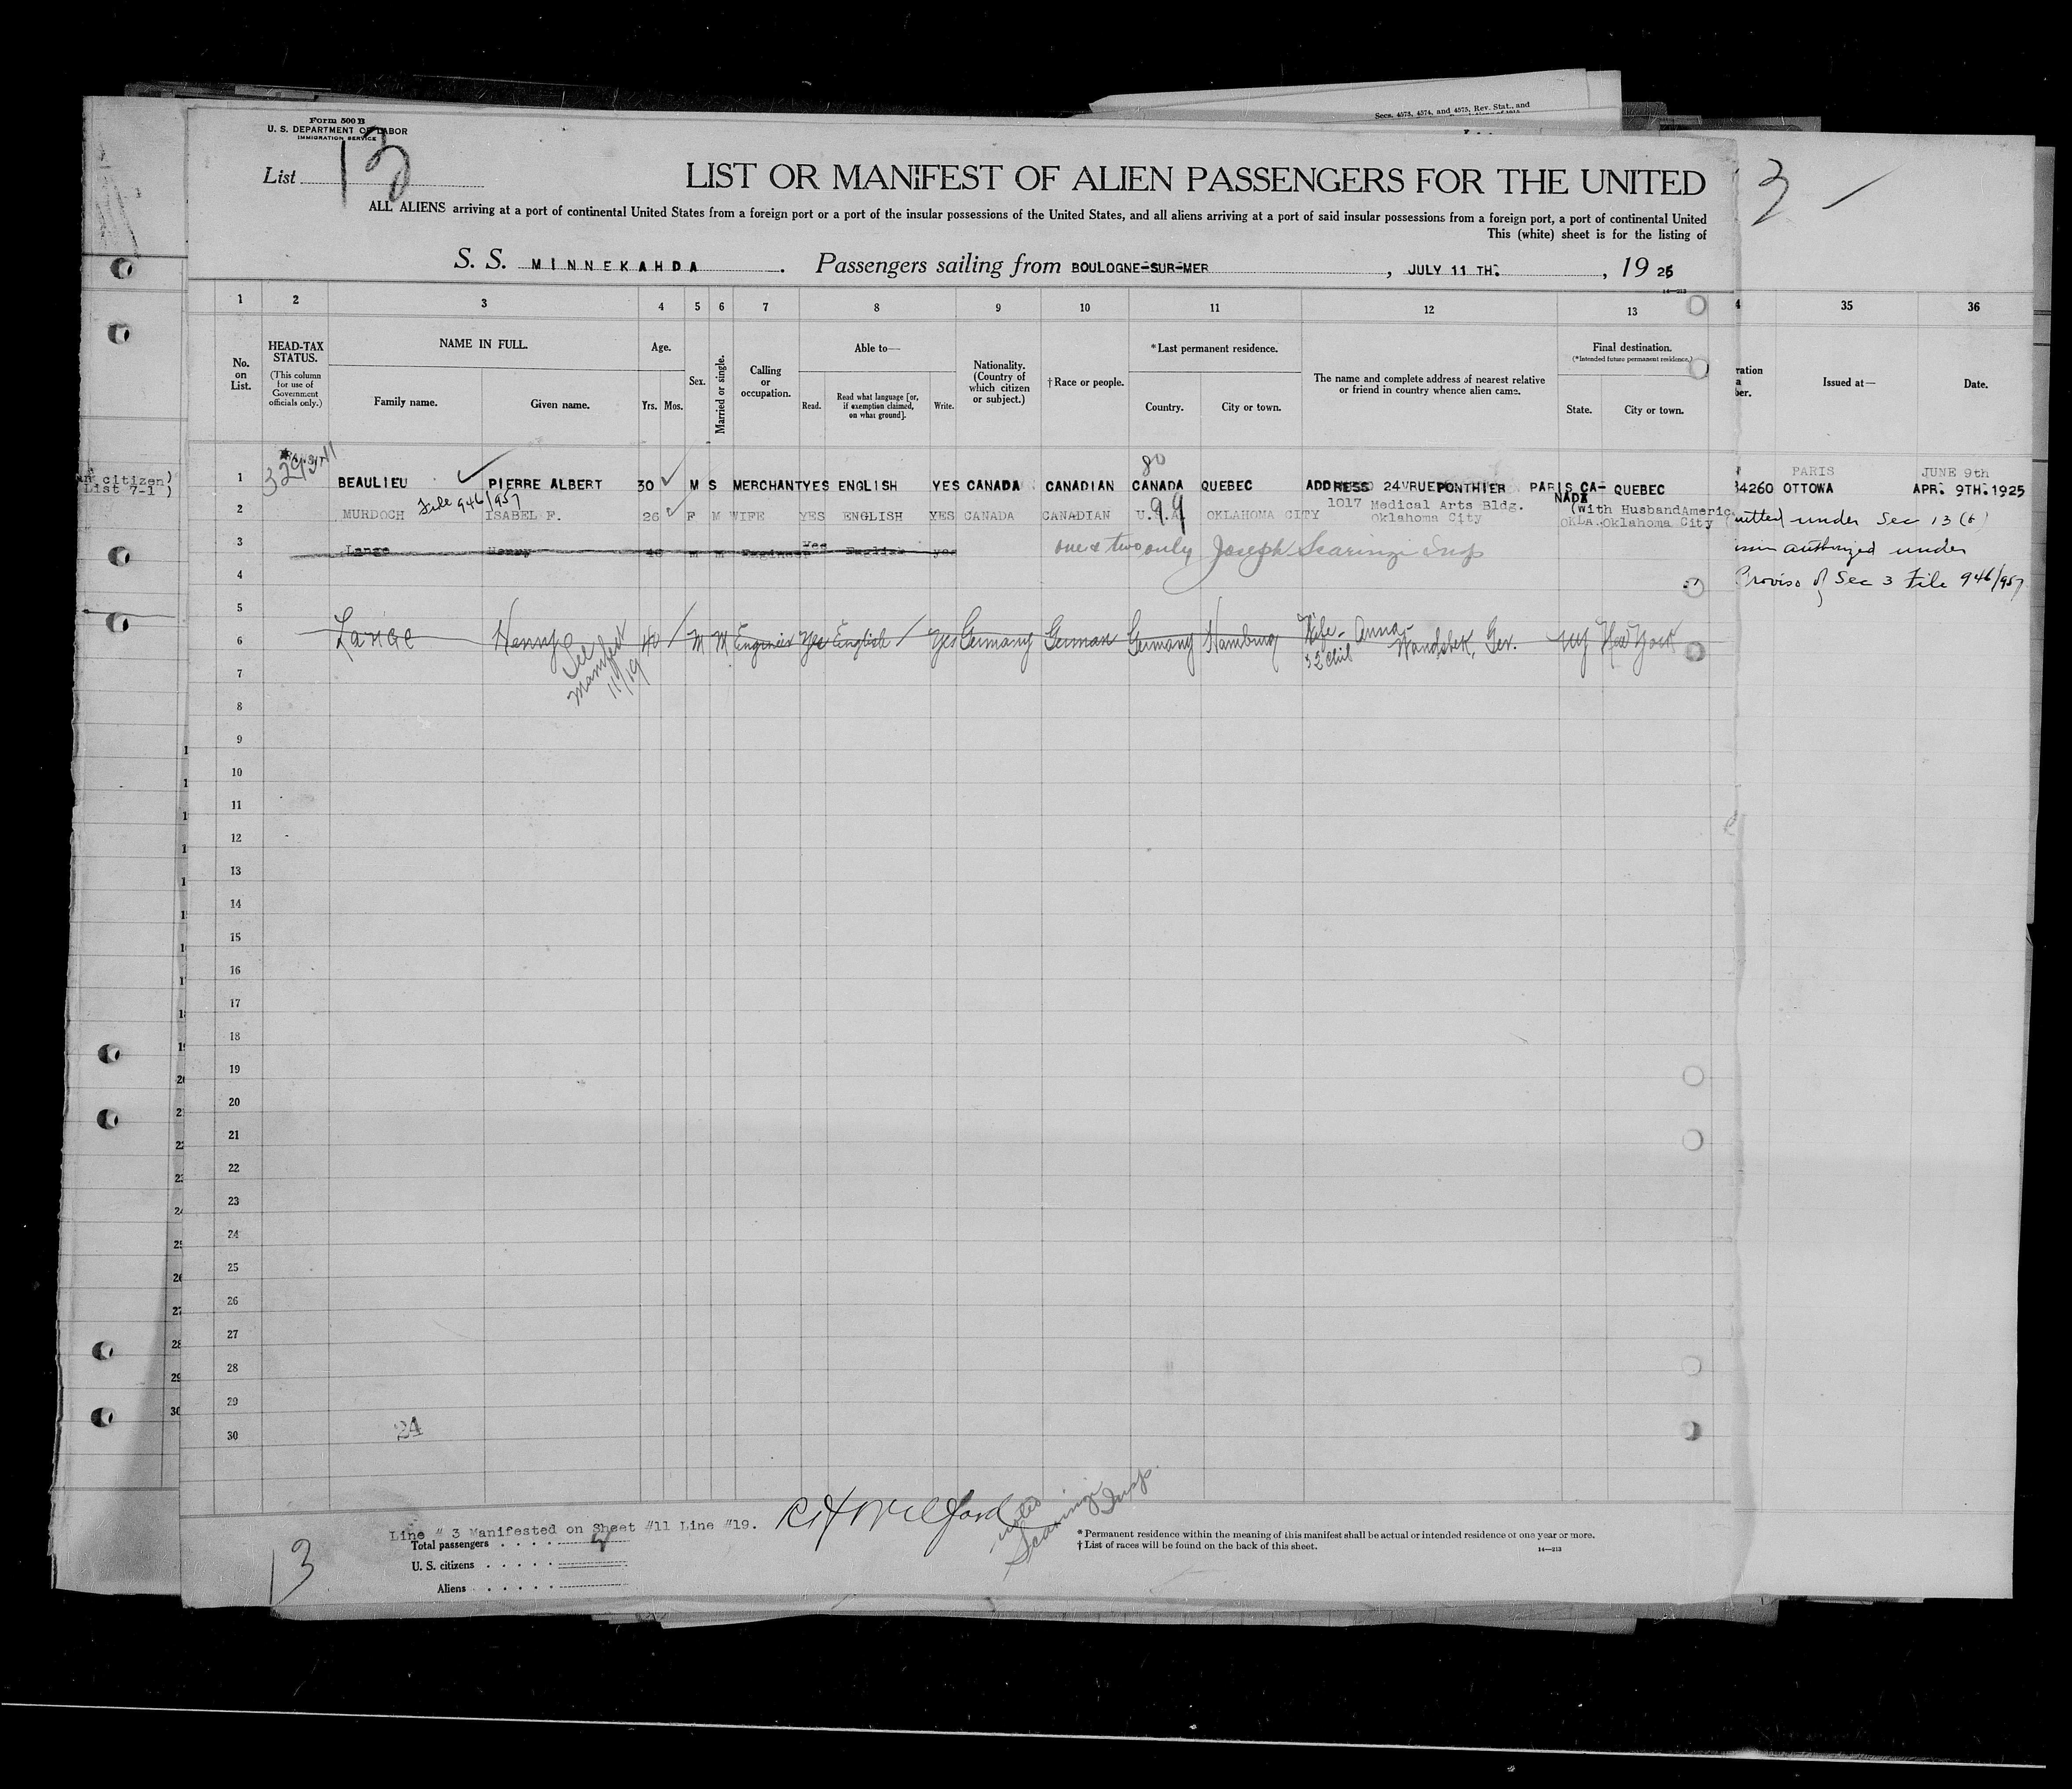 Secs. 4573, 4574, and 4575, Rev. Stat., and
Form 500 B
U. S. DEPARTMENT OF LABOR
IMMIGRATION SERVICE
List 13
LIST OR MANIFEST OF ALIEN PASSENGERS FOR THE UNITED
3
ALL ALIENS arriving at a port of continental United States from a foreign port or a port of the insular possessions of the United States, and all aliens arriving at a port of said insular possessions from a foreign port, a port of continental United
This (white) sheet is for the listing of
S. S. MINNEKAHDA. Passengers sailing from BOULOGNE-SUR-MER, JULY 11 TH., 1925
14—213
1 2 3 4 5 6 7 8 9 10 11 12 13 4 35 36
No. on List.
HEAD-TAX STATUS.
(This column for use of Government officials only.)
NAME IN FULL.
Family name. Given name.
Age.
Yrs. Mos.
Sex.
Married or single.
Calling or occupation.
Able to—
Read. Read what language [or, if exemption claimed, on what ground]. Write.
Nationality. (Country of which citizen or subject.)
†Race or people.
*Last permanent residence.
Country. City or town.
The name and complete address of nearest relative or friend in country whence alien came.
Final destination.
(*Intended future permanent residence.)
State. City or town.
ration
ber.
Issued at—
Date.
80
citizen)
List 7-1 )
PARIS JUNE 9th
1 BEAULIEU PIERRE ALBERT 30 M S MERCHANT YES ENGLISH YES CANADA CANADIAN CANADA QUEBEC ADDRESS 24 RUE PONTHIER PARIS CA-NADA QUEBEC 34260 OTTOWA APR. 9TH.1925
File 946/957
2 MURDOCH ISABEL F. 26 F M WIFE YES ENGLISH YES CANADA CANADIAN U.S.A. 99 OKLAHOMA CITY 1017 Medical Arts Bldg. Oklahoma City (With Husband Americ
OKLA. Oklahoma City
mitted under Sec 13 (b)
3 Lange Henry 40 M M Engineer Yes English yes
one & two only Joseph Scaringi Insp
authorized under
4
Proviso of Sec 3 File 946/957
5
6 Lange Henry 40 M M Engineer Yes English Yes Germany German Germany Hamburg Wife- Anna- Wandsbek, Ger. NY New York
See Manifest 11/19
7
8
9
10
11
12
13
14
15
16
17
18
19
20
21
22
23
24
25
26
27
28
29
30
24
Line # 3 Manifested on Sheet #11 Line #19.
Total passengers
U. S. citizens
Aliens
13
Scaringi Insp.
* Permanent residence within the meaning of this manifest shall be actual or intended residence of one year or more.
† List of races will be found on the back of this sheet.
14—213